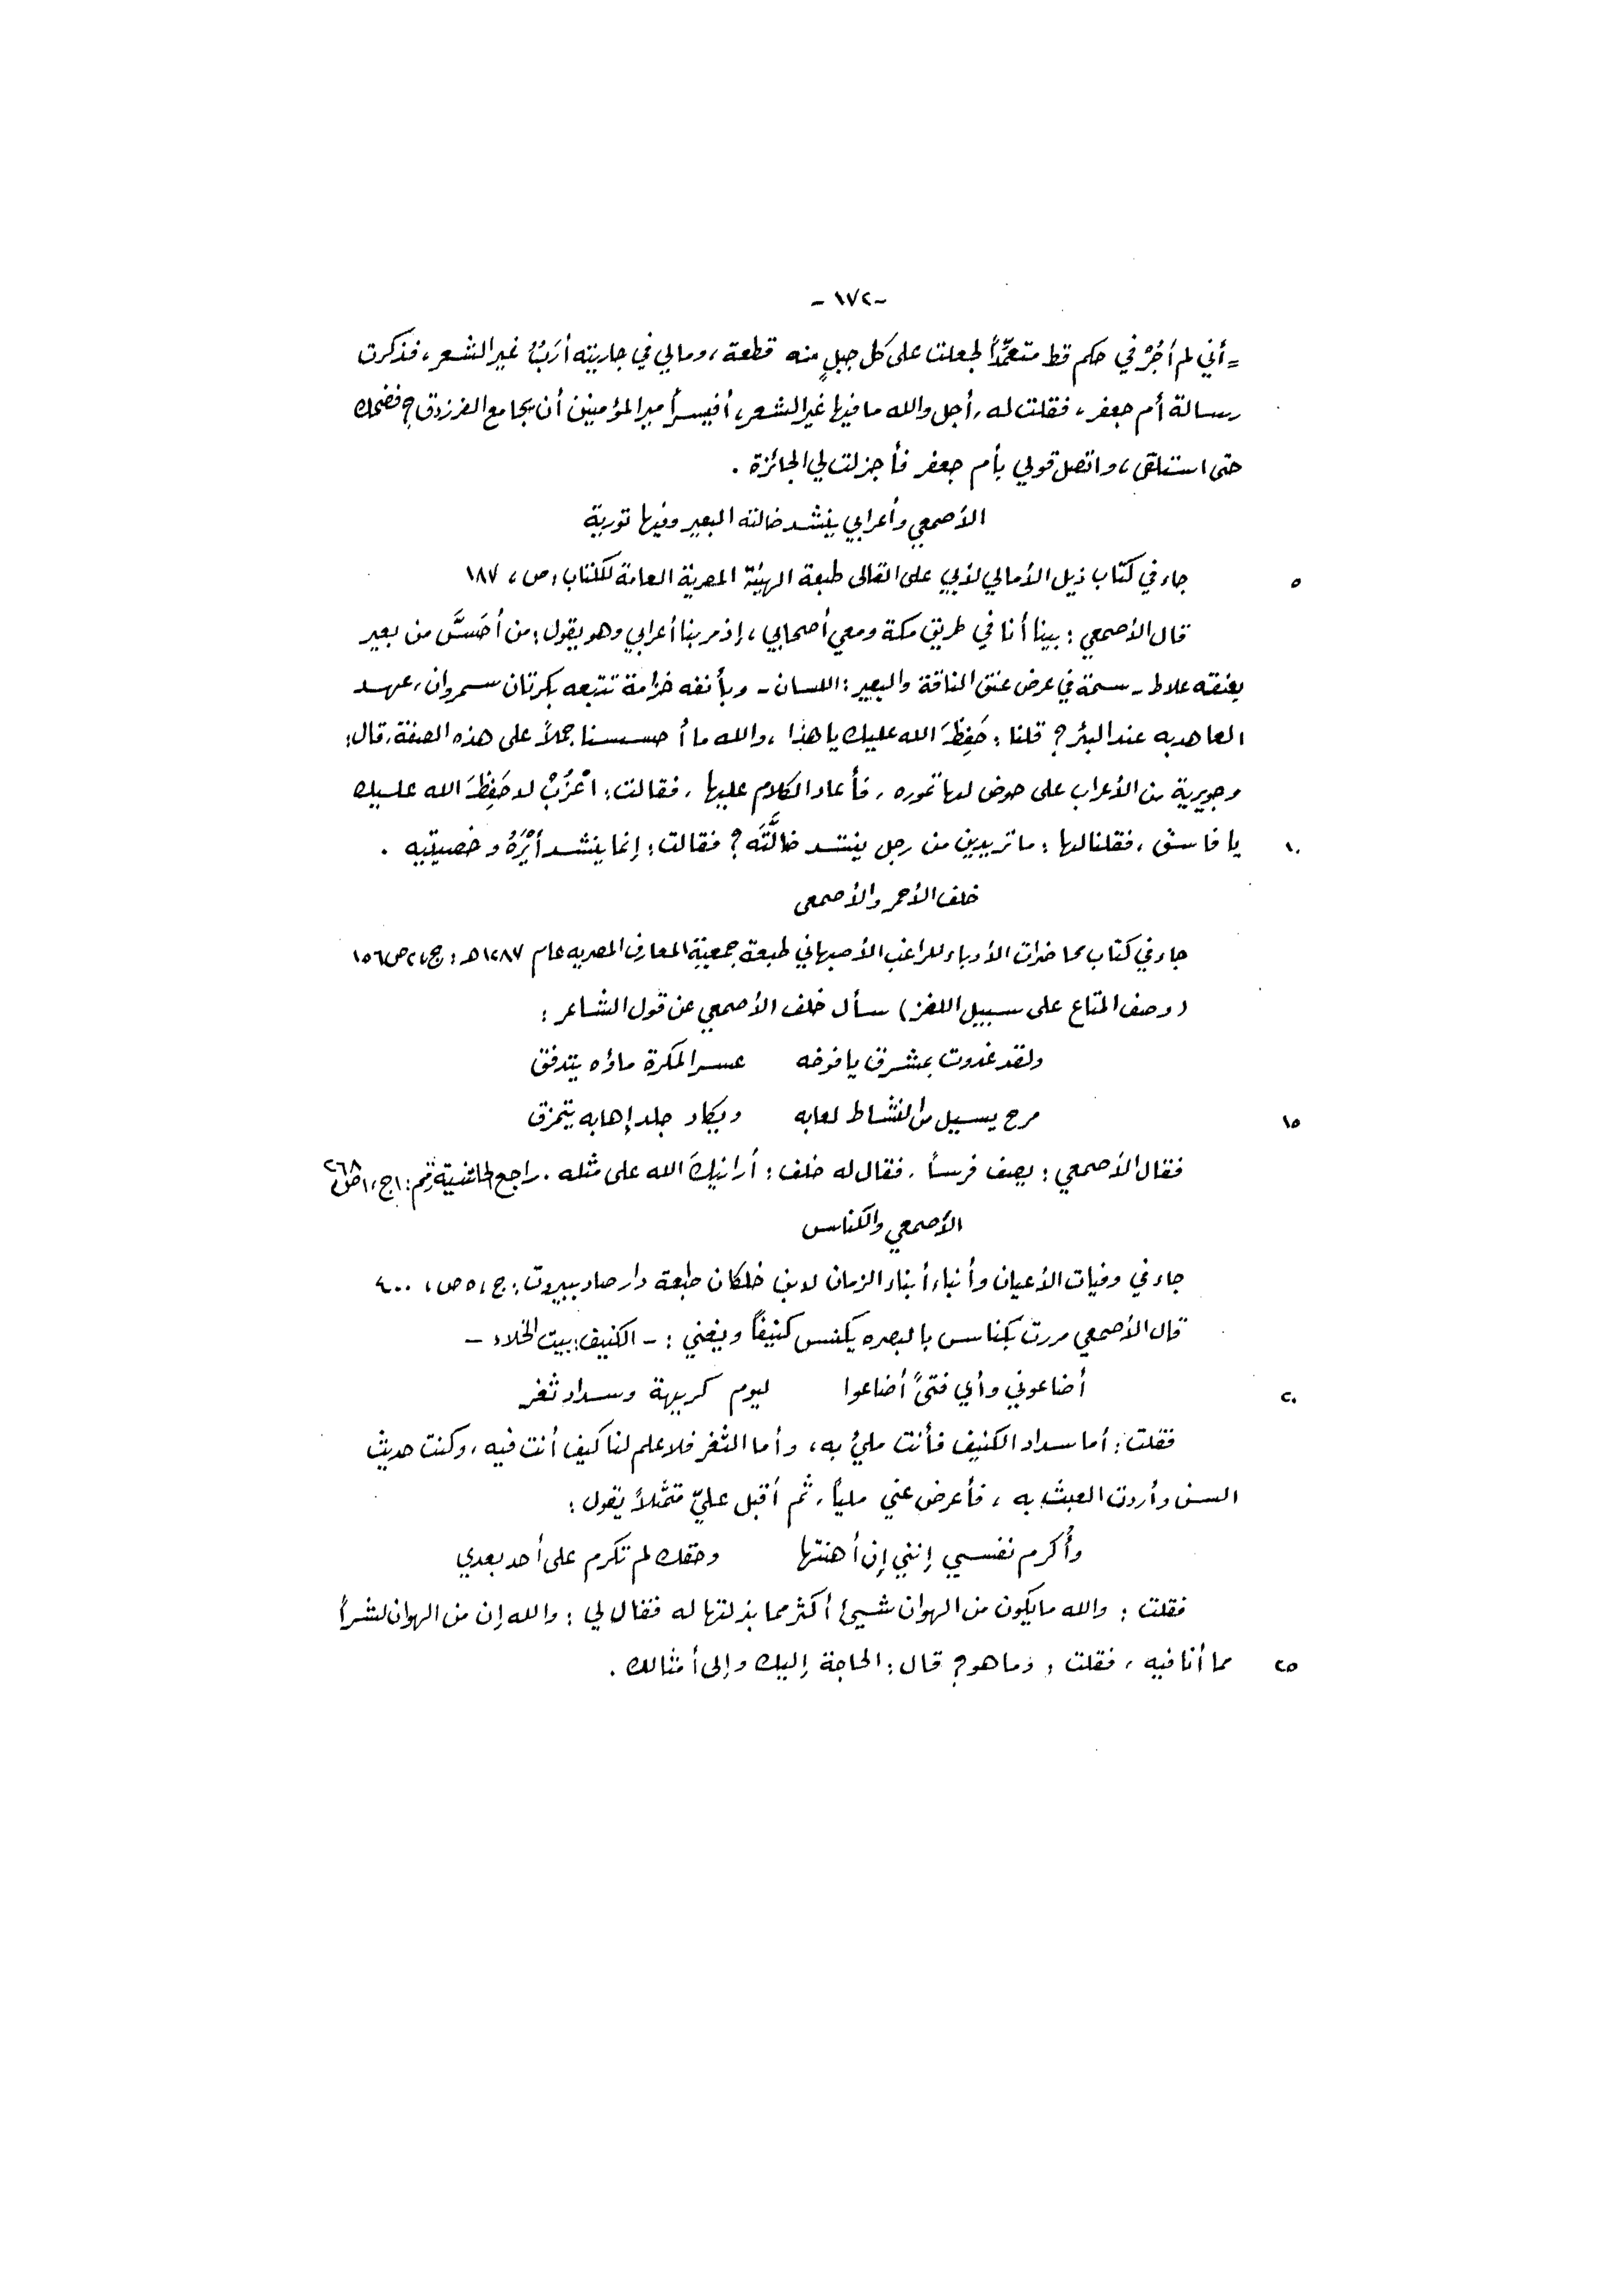 -١٧٢-
= أني لم أَجُرْ في حكم قط متعمّداً لجعلت على كل جبلٍ منه قطعة، ومالي في جاريته أرَبٌ غير الشعر، فذكرت
رسالة أم جعفر، فقلت له، أجل والله ما فيها غير الشعر، أفيسرأمير المؤمنين أن يجامع الفرزدق؟ فضحك
حتى استلقى، واتصل قولي بأم جعفر فأجزلت لي الجائزة .
الأصمعي وأعرابي ينشد ضالته البعير وفيها تورية
٥ جاء في كتاب ذيل الأمالي لأبي على القالى طبعة الهيئة المصرية العامة للكتاب: ص، ١٨٧
قال الأصمعي: بينا أنا في طريق مكة ومعي أصحابي، إذ مر بنا أعرابي وهو يقول: من أحَسَّ من بعير
بعنقه علاط - سمة في عرض عنق الناقة والبعير: اللسان - وبأنفه خزامة تتبعه بكرتان سمروان، عهد
العاهد به عند البئر؟ قلنا: حَفِظَ الله عليك يا هذا، والله ما أحسسنا جملاً على هذه الصفة، قال:
وجويرية من الأعراب على حوض لها تموره، فأعاد الكلام عليها، فقالت: اعْزُبْ لا حَفِظَ الله عليك
١٠ يا فاسق، فقلنا لها: ما تريدين من رجل ينشد ضالَّتَه؟ فقالت: إنما ينشد أيْرَهُ وخصييتيه .
خلف الأحمر والأصمعى
جاء في كتاب محاضرات الأدباء للراغب الأصبهاني طبعة جمعية المعارف المصريه عام ١٢٨٧ هـ: ج، ٢ ص ١٥٦
(وصف المتاع على سبيل اللغز) سأل خلف الأصمعي عن قول الشاعر:
ولقد غدوت بمشرق يافوخه عسر المكرة ماؤه يتدفق
١٥ مرح يسيل من النشاط لعابه ويكاد جلد إهابه يتمزق
فقال الأصمعي: يصف فرساً، فقال له خلف: أرانيكَ الله على مثله. راجع الحاشية رقم: ١ ج، ١ ص، ٢٦٨
الأصمعي والكناس
جاء في وفيات الأعيان وأنباء أبناء الزمان لابن خلكان طبعة دار صادر ببيروت: ج، ٥ ص، ٤٠٠
قال الأصمعي مررت بكناس بالبصره يكنس كنيفاً ويغني: - الكنيف: بيت الخلاء -
٢٠ أضاعوني وأي فتىً أضاعوا ليوم كريهة وسداد ثغر
فقلت: أما سداد الكنيف فأنت مليُّ به، وأما الثغر فلا علم لنا كيف أنت فيه، وكنت حديث
السن وأردت العبث به، فأعرض عني ملياً، ثم أقبل عليّ متمثلاً يقول:
وأُكرم نفسي إنني إن أهنتها وحقك لم تكرم على أحد بعدي
فقلت: والله ما يكون من الهوان شيئ أكثر مما بذلتها له فقال لي: والله إن من الهوان لشراً
٢٥ مما أنا فيه، فقلت: وما هو؟ قال: الحاجة إليك وإلى أمثالك .